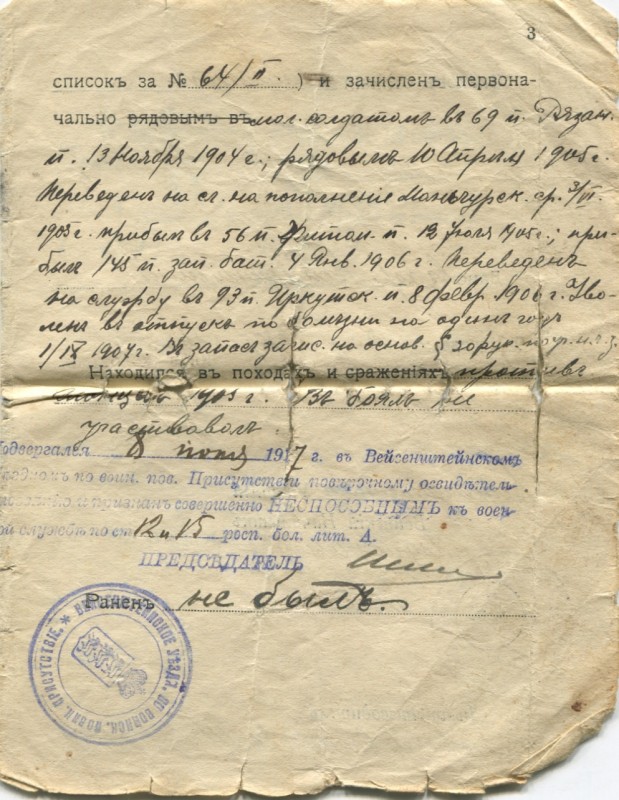 3
списокъ за № 64/II. ) и зачисленъ первона-
чально рядовымъ въ мол. солдатомъ въ 69 п. Рязан.
п. 13 Ноября 1904 г.; рядовымъ 10 Апрѣля 1905 г.
Переведенъ на сл. на пополненіе Маньчурск. ср. 3/VI
1905 г. прибылъ въ 56 п. Житом. п. 12 Іюля 1905 г.; при-
былъ 145 п. зап. бат. 4 Янв. 1906 г. Переведенъ
на службу въ 93 п. Иркутск. п. 8 февр. 1906 г. Уво-
ленъ въ отпускъ по болѣзни на одинъ годъ
1/IX 1907 г. Въ запасъ зачис. на основ. §
Находился въ походахъ и сраженіяхъ противъ
1905 г. Въ бояхъ не
участвовалъ
Подвергался 8 іюня 1917 г. въ Вейсенштейнскомъ
уѣздномъ по воин. пов. Присутствіи повѣрочному освидѣтель-
и признанъ совершенно НЕСПОСОБНЫМЪ къ воен-
ой службѣ по ст. 12 и 15 росп. бол. лит. А.
ПРЕДСѢДАТЕЛЬ
Раненъ не былъ.
ВЕЙСЕНШТЕЙНСКОЕ УѢЗД. ПО ВОИНСК. ПОВИН. ПРИСУТСТВІЕ.